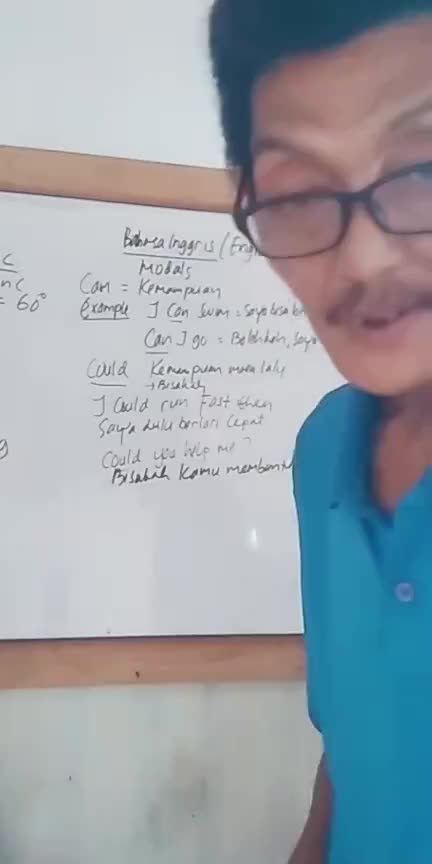 c
nc
= 60°
Bahasa Inggris (Eng
Modals
Can = Kemampuan
Example I Can Swim = Saya bisa be
Can I go = Bolehkah, Saya
Could Kemampuan masa lalu
→ Bisakah
I Could run Fast then
Saya dulu berlari Cepat
Could you help me?
Bisakah Kamu membantu